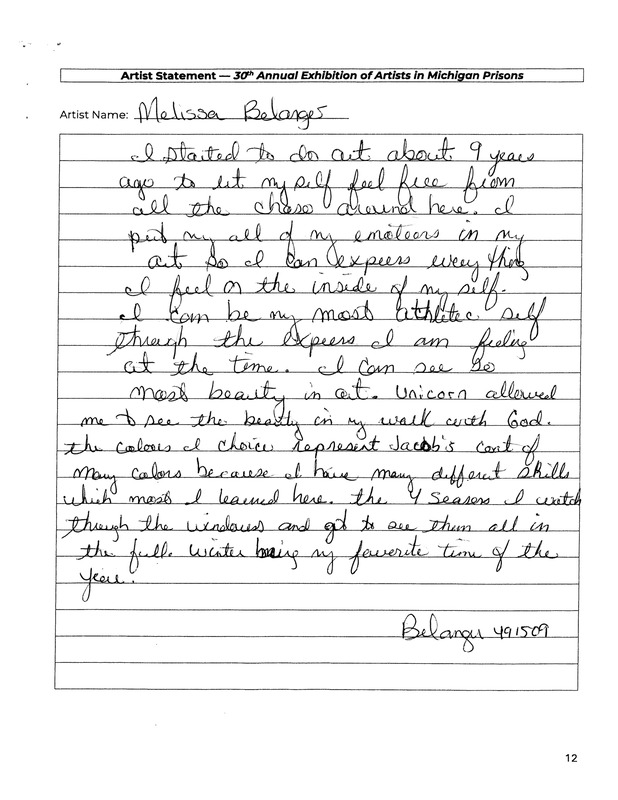 Artist Statement — 30th Annual Exhibition of Artists in Michigan Prisons
Artist Name: Melissa Belanger
I started to do art about 9 years
ago to let my self feel free from
all the chaso around here. I
put my all of my emoteors in my
art so I can expeers every thing
I feel on the inside of my self.
I can be my most athletec self
through the expeers I am feeling
at the time. I can see so
most beauty in art. Unicorn allowed
me to see the beauty in my walk with God.
the colors I choice represent Jacob's coat of
many colors because I have many different skills
which most I learned here. the 4 Seasons I watch
through the windows and got to see them all in
the full. Winter being my faverite time of the
year.
Belanger 491509
12